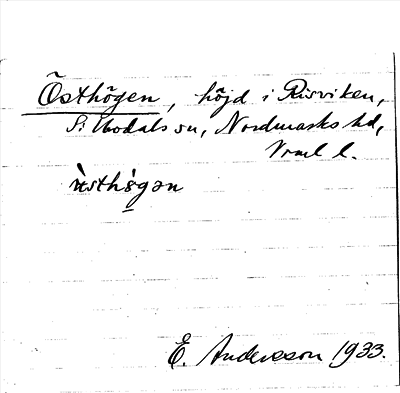 Östhögen, höjd i Risviken,
S: Bodals sn, Nordmarks hd,
Vrml l.
E. Andersson 1933.